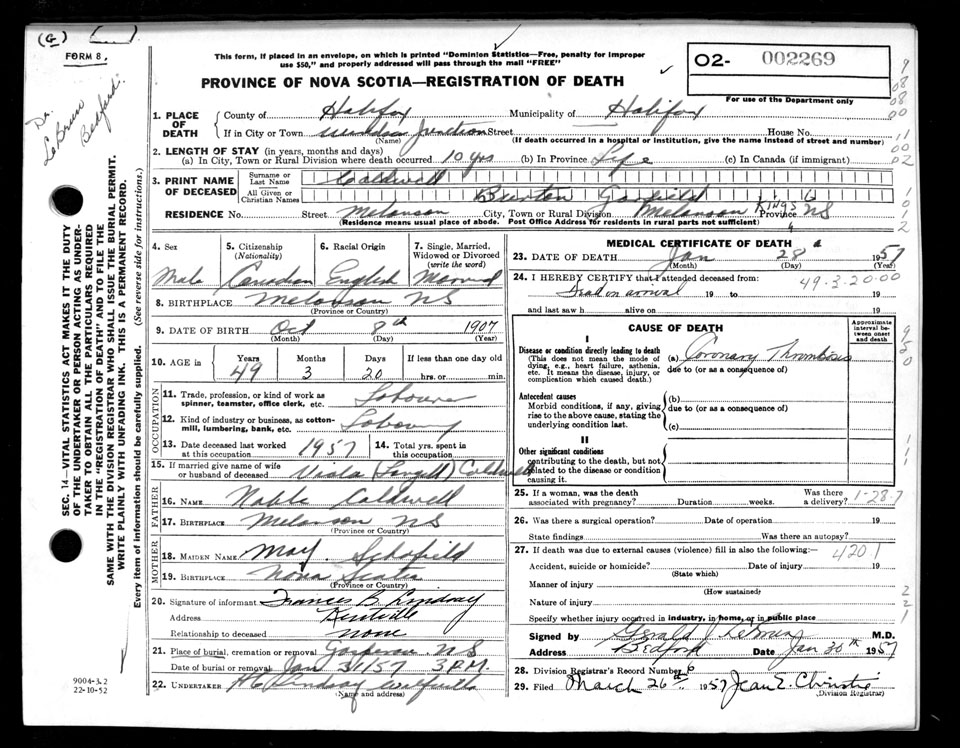 (G)
FORM 8.
Dr.
LeBrun
Bedford.
This form, if placed in an envelope, on which is printed "Dominion Statistics—Free, penalty for improper
use $50," and properly addressed will pass through the mail "FREE"
PROVINCE OF NOVA SCOTIA—REGISTRATION OF DEATH
O2- 002269
For use of the Department only
1. PLACE OF DEATH
County of Halifax Municipality of Halifax
If in City or Town Windsor Junction Street House No.
(Name) (If death occurred in a hospital or institution, give the name instead of street and number)
2. LENGTH OF STAY (in years, months and days)
(a) In City, Town or Rural Division where death occurred 10 yrs (b) In Province Life (c) In Canada (if immigrant)
3. PRINT NAME OF DECEASED
Surname or Last Name Caldwell
All Given or Christian Names Burton Garfield
RESIDENCE No. Street Melanson City, Town or Rural Division Melanson Kings Province NS
(Residence means usual place of abode. Post Office Address for residents in rural parts not sufficient)
4. Sex 5. Citizenship (Nationality) 6. Racial Origin 7. Single, Married, Widowed or Divorced (write the word)
Male Canadian English Married
8. BIRTHPLACE Melanson NS
(Province or Country)
9. DATE OF BIRTH Oct 8th 1907
(Month) (Day) (Year)
10. AGE in Years Months Days If less than one day old
49 3 20 hrs. or min.
OCCUPATION
11. Trade, profession, or kind of work as spinner, teamster, office clerk, etc. Labourer
12. Kind of industry or business, as cotton-mill, lumbering, bank, etc. Labouring
13. Date deceased last worked at this occupation 1957 14. Total yrs. spent in this occupation
15. If married give name of wife or husband of deceased Viola (Langill) Caldwell
FATHER
16. NAME Noble Caldwell
17. BIRTHPLACE Melanson NS
(Province or Country)
MOTHER
18. MAIDEN NAME May Schofield
19. BIRTHPLACE Nova Scotia
(Province or Country)
20. Signature of informant Frances B. Lindsay
Address Kentville
Relationship to deceased none
21. Place of burial, cremation or removal Gaspereau NS
Date of burial or removal Jan 31/57 3 P.M.
22. UNDERTAKER H C Lindsay Wolfville
(Name and address)
SEC. 14—VITAL STATISTICS ACT MAKES IT THE DUTY
OF THE UNDERTAKER OR PERSON ACTING AS UNDER-
TAKER TO OBTAIN ALL THE PARTICULARS REQUIRED
IN THE "REGISTRATION OF DEATH" AND TO FILE THE
SAME WITH THE DIVISION REGISTRAR WHO SHALL ISSUE THE BURIAL PERMIT.
WRITE PLAINLY WITH UNFADING INK. THIS IS A PERMANENT RECORD.
Every item of information should be carefully supplied. (See reverse side for instructions.)
9004-3.2
22-10-52
MEDICAL CERTIFICATE OF DEATH
23. DATE OF DEATH Jan 28 1957
(Month) (Day) (Year)
24. I HEREBY CERTIFY that I attended deceased from: 49-3-20-00
Dead on arrival 19 to 19
and last saw h alive on 19
CAUSE OF DEATH
Approximate interval between onset and death
I
Disease or condition directly leading to death (a) Coronary Thrombosis
(This does not mean the mode of dying, e.g., heart failure, asthenia, etc. It means the disease, injury, or complication which caused death.)
due to (or as a consequence of)
Antecedent causes
Morbid conditions, if any, giving rise to the above cause, stating the underlying condition last.
(b)
due to (or as a consequence of)
(c)
II
Other significant conditions
contributing to the death, but not related to the disease or condition causing it.
25. If a woman, was the death associated with pregnancy? Duration weeks. Was there a delivery? 1-28-7
26. Was there a surgical operation? Date of operation 19
State findings Was there an autopsy?
27. If death was due to external causes (violence) fill in also the following:— 420.1
Accident, suicide or homicide? Date of injury 19
(State which)
Manner of injury
(How sustained)
Nature of injury
Specify whether injury occurred in industry, in home, or in public place
Signed by Gerald J. LeBrun M.D.
Address Bedford Date Jan 30th 1957
28. Division Registrar's Record Number 6
29. Filed March 26th 1957 Jean E. Christie
(Division Registrar)